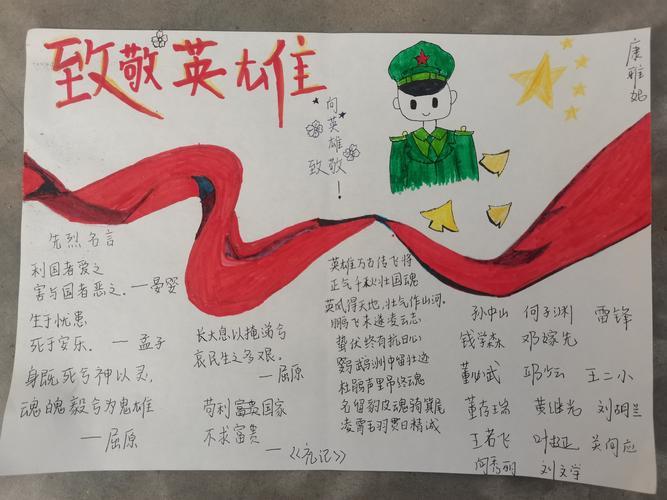 致敬英雄
康雅妮
向英雄
致敬！
先烈名言
利国者爱之
害与国者恶之。——晏婴
生于忧患
死于安乐。——孟子
身既死兮神以灵，
魂魄毅兮为鬼雄
——屈原
长太息以掩涕兮
哀民生之多艰。
——屈原
苟利国家
不求富贵
——《礼记》
英雄万古传飞将
正气千秋壮国魂
英风得天地，壮气作山河。
鹏飞未遂凌云志
蛰伏终有抗日心
鹦鹉洲中留壮迹
杜鹃声里吊终魂
名留豹皮魂骑箕尾
凌霄毛羽贯日精诚
孙中山 何子渊 雷锋
钱学森 邓嫁先
董必武 邱少云 王二小
董存瑞 黄继光 刘胡兰
王若飞 叶挺 关向应
闫秀丽 刘文学